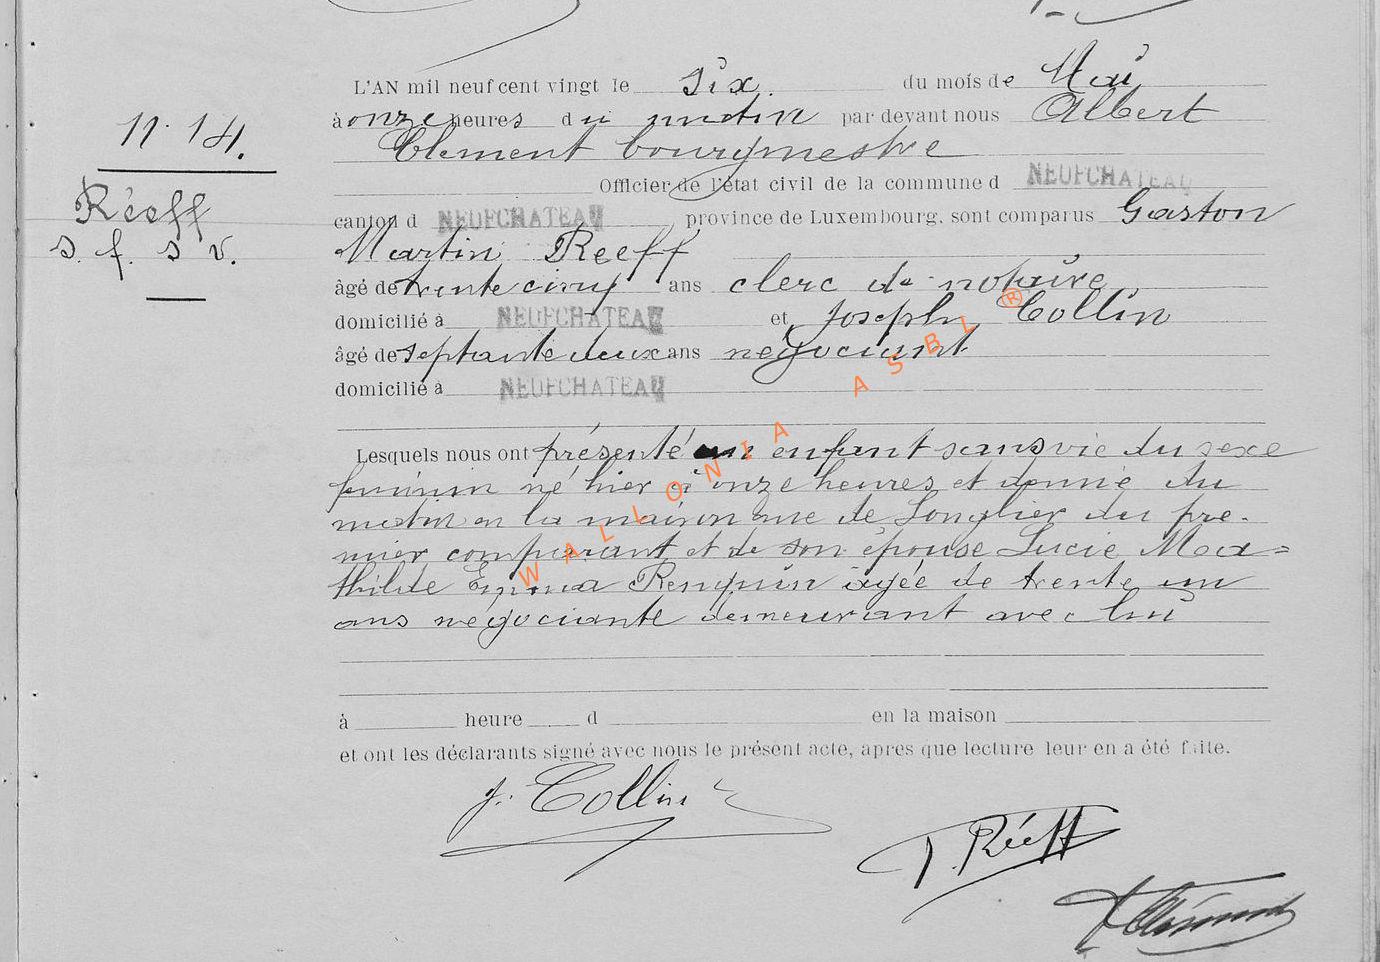 L'AN mil neuf cent vingt le six. du mois de Mai
à onze heures du matin par devant nous Albert
Clement bourgmestre
Officier de l'état civil de la commune d NEUFCHATEAU
canton d NEUFCHATEAU province de Luxembourg, sont comparus Gaston
N 14.
Réeff
s. f. s v.
Martin Reeff
âgé de trente cinq ans clerc de notaire
domicilié à NEUFCHATEAU et Joseph Collin
âgé de septante deux ans négociant
domicilié à NEUFCHATEAU
Lesquels nous ont présenté un enfant sans vie du sexe
féminin né hier à onze heures et demie du
matin en la maison rue de Longlier du pre-
mier comparant et de son épouse Lucie Ma=
thilde Emma Renquin âgée de trente un
ans négociante demeurant avec lui
à heure d en la maison
et ont les déclarants signé avec nous le présent acte, apres que lecture leur en a été faite.
J. Collin
Réeff
A Clément
WALLONIA ASBL ®